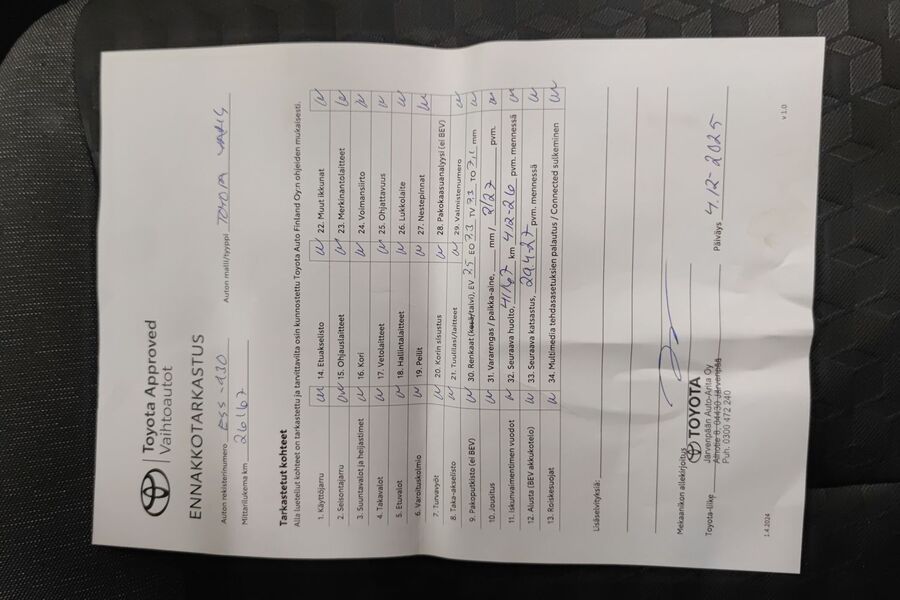 Toyota Approved
Vaihtoautot
ENNAKKOTARKASTUS
Auton rekisterinumero ESS-930 Auton malli/tyyppi TOYOTA YARIS
Mittarilukema km 26167
Tarkastetut kohteet
Alla luetellut kohteet on tarkastettu ja tarvittavilta osin kunnostettu Toyota Auto Finland Oy:n ohjeiden mukaisesti.
1. Käyttöjarru
2. Seisontajarru
3. Suuntavalot ja heijastimet
4. Takavalot
5. Etuvalot
6. Varoituskolmio
7. Turvavyöt
8. Taka-akselisto
9. Pakoputkisto (ei BEV)
10. Jousitus
11. Iskunvaimentimen vuodot
12. Alusta (BEV akkukotelo)
13. Roiskesuojat
14. Etuakselisto
15. Ohjauslaitteet
16. Kori
17. Vetolaitteet
18. Hallintalaitteet
19. Peilit
20. Korin sisustus
21. Tuulilasi/laitteet
22. Muut ikkunat
23. Merkinantolaitteet
24. Voimansiirto
25. Ohjattavuus
26. Lukkolaite
27. Nestepinnat
28. Pakokaasuanalyysi (ei BEV)
29. Valmistenumero
30. Renkaat (kesä/talvi), EV 7.5 EO 7.3 TV 7.3 TO 7.1 mm
31. Vararengas / paikka-aine, mm / 2/27 pvm.
32. Seuraava huolto, 41167 km 4/12-26 pvm. mennessä
33. Seuraava katsastus, 29.4-27 pvm. mennessä
34. Multimedia tehdasasetuksien palautus / Connected sulkeminen
Lisäselvityksiä:
Mekaanikon allekirjoitus
Toyota-liike
TOYOTA
Järvenpään Auto-Anta Oy
Alhotie 8, 04430 Järvenpää
Puh. 0300 472 240
Päiväys 4.12-2025
1.4.2024
v 1.0